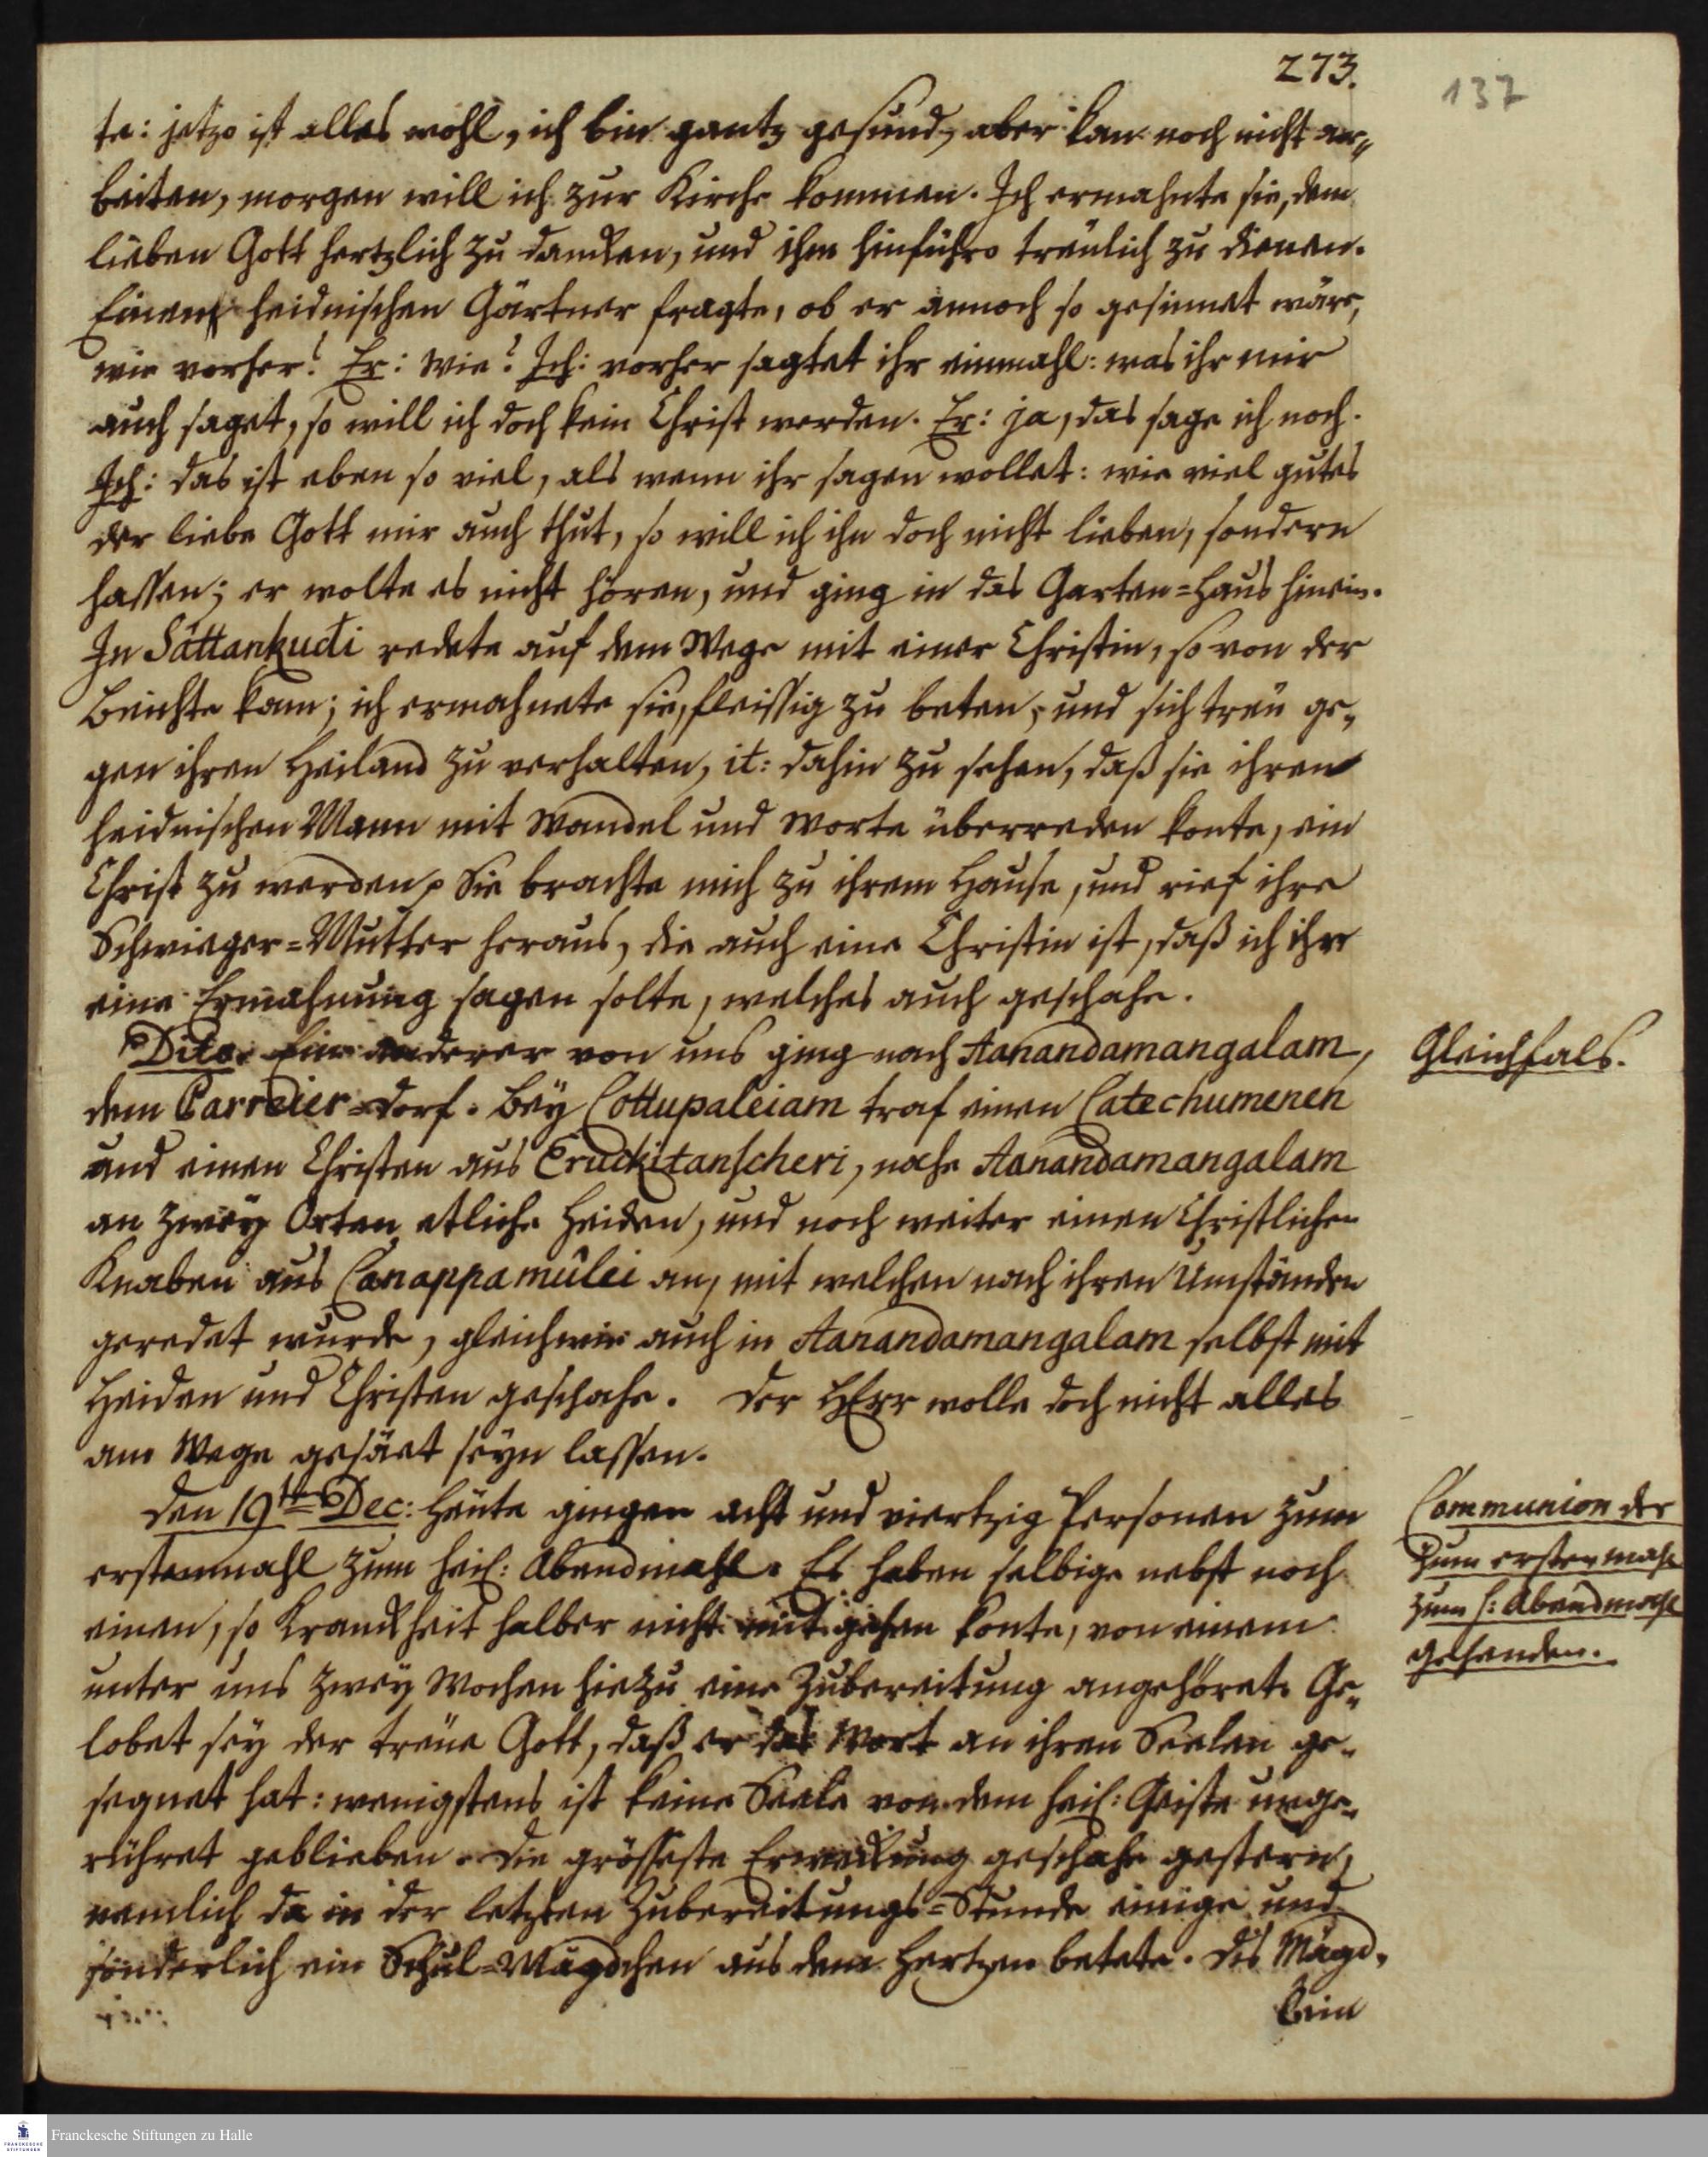 273.
137
te: jetzo ist alles wohl, ich bin gantz gesund, aber kan noch nicht ar-
beiten, morgen will ich zur Kirche kommen. Ich ermahnte sie, dem
lieben Gott hertzlich zu dancken, und ihm hinführo treulich zu dienen.
Einem heidnischen Gärtner fragte, ob er annoch so gesinnet wäre,
wie vorher? Er: Wie? Ich: vorher sagtet ihr einmahl: was ihr mir
auch saget, so will ich doch kein Christ werden. Er: ja, das sage ich noch.
Ich: das ist eben so viel, als wenn ihr sagen wollet: wie viel gutes
der liebe Gott mir auch thut, so will ich ihn doch nicht lieben, sondern
hassen; er wolte es nicht hören, und ging in das Garten=Haus hinein.
In Sâttankudi redete auf dem Wege mit einer Christin, so von der
Beichte kam; ich ermahnete sie, fleissig zu beten, und sich treu ge-
gen ihren Heiland zu verhalten, it: dahin zu sehen, daß sie ihren
heidnischen Mann mit Wandel und Worte überreden konte, ein
Christ zu werden. Sie brachte mich zu ihrem Hause, und rief ihre
Schwieger=Mutter heraus, die auch eine Christin ist, daß ich ihr
eine Ermahnung sagen solte, welches auch geschahe.
Dito. Ein anderer von uns ging nach Aanandamangalam,
Gleichfals.
dem Parreier=Dorf. Bey Cottupaleiam traf einen Catechumenen
und einen Christen aus Eruckitanscheri, nahe Aanandamangalam
an zwey Orten etliche Heiden, und noch weiter einen Christlichen
Knaben aus Canappamûlei an, mit welchen nach ihren Umständen
geredet wurde, gleichwie auch in Aanandamangalam selbst mit
Heiden und Christen geschahe. Der HErr wolle doch nicht alles
am Wege gesäet seyn lassen.
Den 19ten Dec: Heute gingen acht und viertzig Personen zum
Communion der
erstenmahl zum heil: Abendmahl. Es haben selbige nebst noch
zum erstenmahl
einen, so Kranckheit halber nicht mit gehen konte, von einem
zum h: Abendmahl
unter uns zwey Wochen hiezu eine Zubereitung angehöret. Ge-
gehenden.
lobet sey der treue Gott, daß er das Wort an ihren Seelen ge-
segnet hat: wenigstens ist keine Seele von dem heil: Geiste unge-
rühret geblieben. Die grösseste Erweckung geschahe gestern,
nemlich da in der letzten Zubereitungs=Stunde einige und
sonderlich ein Schul=Mägdchen aus dem Hertzen betete. Dis Mägd-
lein
Franckesche Stiftungen zu Halle